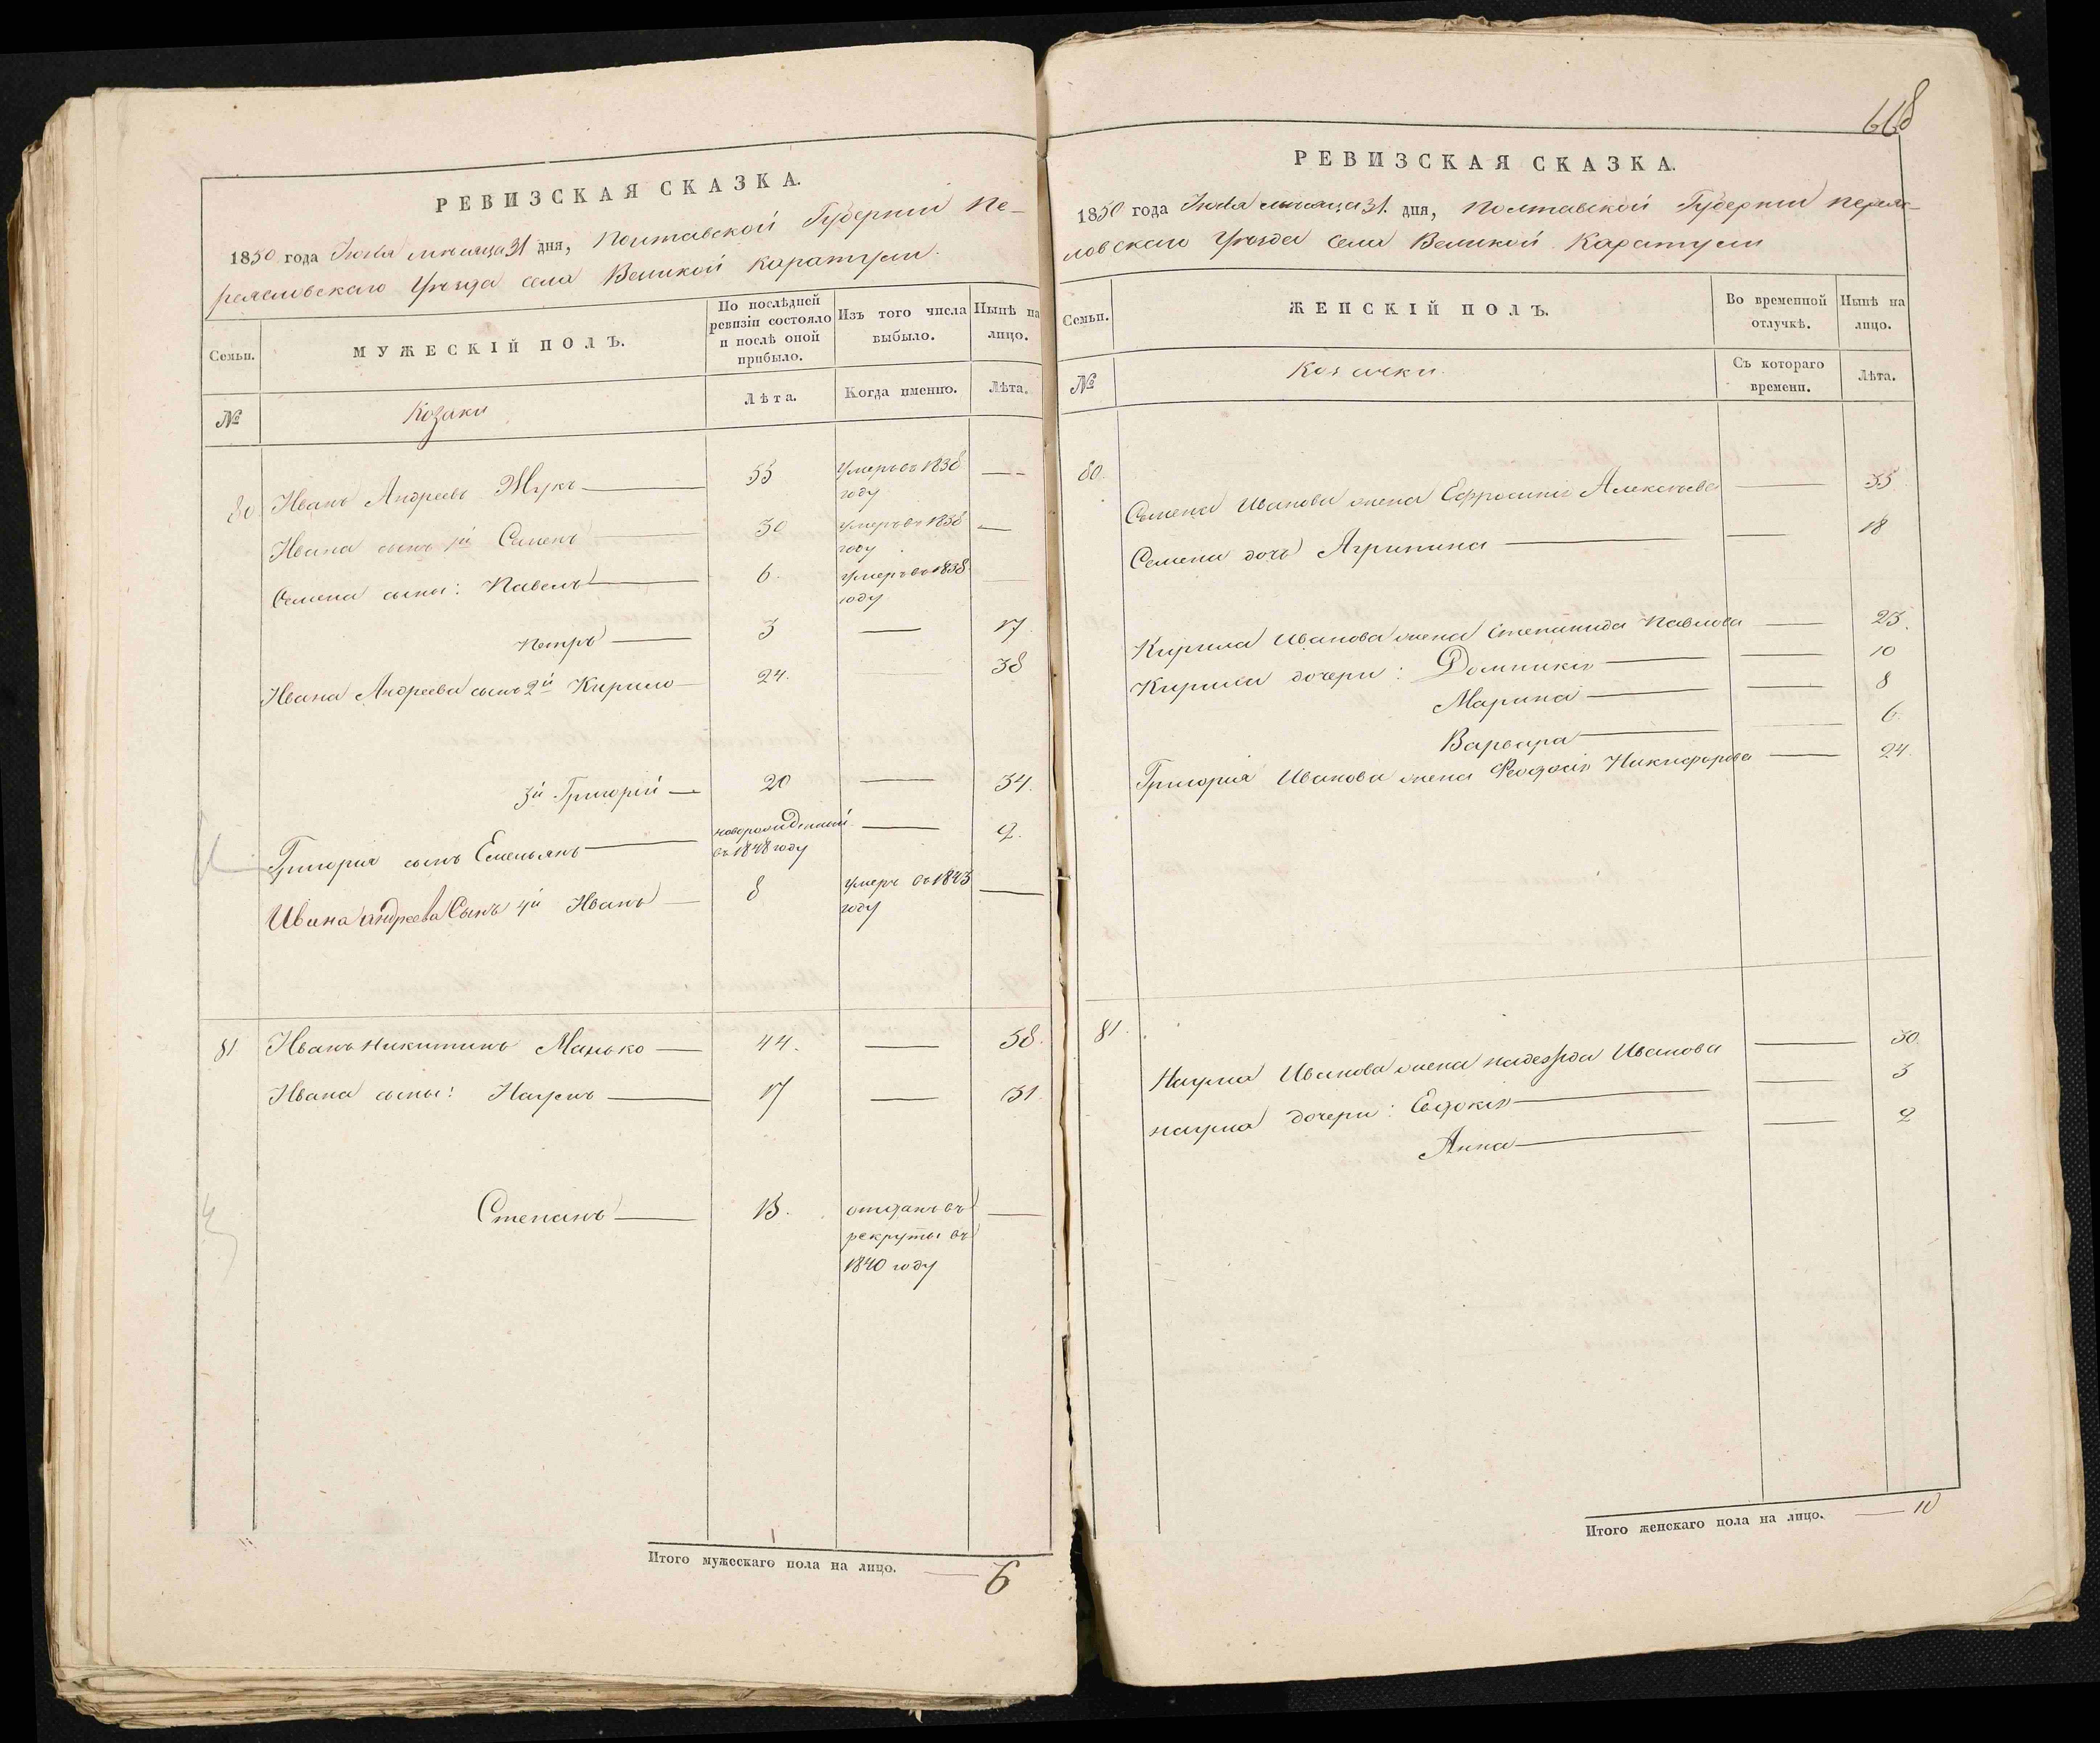 668
РЕВИЗСКАЯ СКАЗКА.
1850 года Июля месяца 31 дня, Полтавской Губерніи Пе-
реяславскаго Уѣзда села Великой Каратули.
Семьи.
МУЖЕСКІЙ ПОЛЪ.
По послѣдней ревизіи состояло и послѣ оной прибыло.
Изъ того числа выбыло.
Нынѣ на лицо.
№
Козаки
Лѣта.
Когда именно.
Лѣта.
80 Иванъ Андреевъ Жукъ 55 Умеръ въ 1838 году —
Ивана сынъ 1й Семенъ 30 умеръ въ 1838 году —
Семена сыны: Павелъ 6. умеръ въ 1838 году
Петръ 3 — 17.
Ивана Андреева сынъ 2й Кирило 24. 38
3й Григорій 20 — 34.
Григорія сынъ Емельянъ новорожденный въ 1848 году — 2.
Ивана Андреева Сынъ 4й Иванъ 8 умеръ въ 1843 году —
81 Иванъ Никитинъ Манько 44. — 58.
Ивана сыны: Наумъ 17 — 31.
Степанъ 13. отданъ въ рекруты въ 1840 году —
Итого мужескаго пола на лицо. — 6
РЕВИЗСКАЯ СКАЗКА.
1850 года Июля месяца 31. дня, Полтавской Губерніи Переяс-
лавскаго Уѣзда села Великой Каратули
Семьи.
ЖЕНСКІЙ ПОЛЪ.
Во временной отлучкѣ.
Нынѣ на лицо.
№
Козачки.
Съ котораго времени.
Лѣта.
80.
Семена Иванова жена Ефросинія Алексѣева — 55.
Семена дочь Агрипина — 18
Кирила Иванова жена Степанида Павлова — 25.
Кирила дочери: Домникія — 10
Марина — 8
Варвара — 6.
Григорія Иванова жена Феодосія Никифорова — 24.
81.
Наума Иванова жена Надежда Иванова — 30.
Наума дочери: Евдокія — 3
Анна — 2
Итого женскаго пола на лицо. — 10